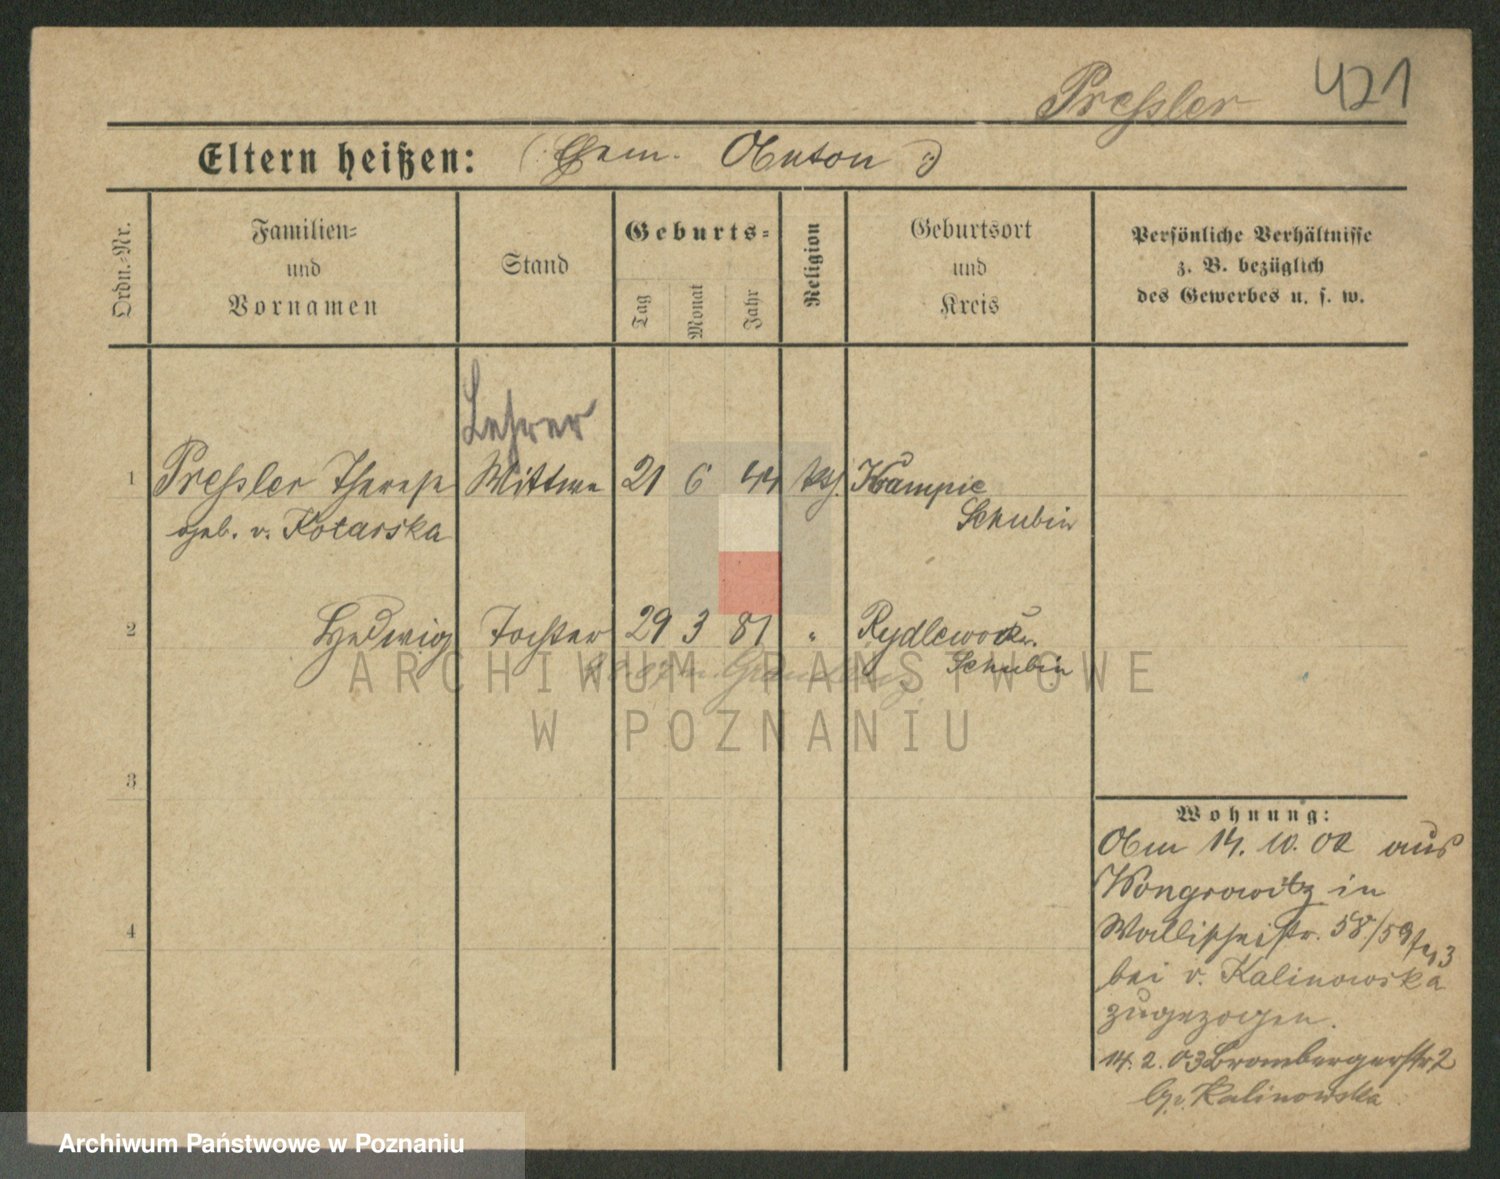 Pressler 421
Eltern heißen: (: Gem. Anton :)
Ordn.-Nr.
Familien-
und
Vornamen
Stand
Geburts-
Tag
Monat
Jahr
Religion
Geburtsort
und
Kreis
Persönliche Verhältnisse
z. B. bezüglich
des Gewerbes u. s. w.
Lehrer
1 Pressler Therese Wittwe 21 6 44 kth. Krampie
geb. v. Kotarska Schubin
2 Hedwig Tochter 29 3 81 " Rydlewo
Schubin
Graudenz
ARCHIWUM PAŃSTWOWE
W POZNANIU
3
4
Wohnung:
Am 14. 10. 02 aus
Wongrowitz in
Wallischeistr. 58/59
bei v. Kalinowska
zugezogen.
14. 2. 03 Brombergerstr 2
b/v. Kalinowska
Archiwum Państwowe w Poznaniu